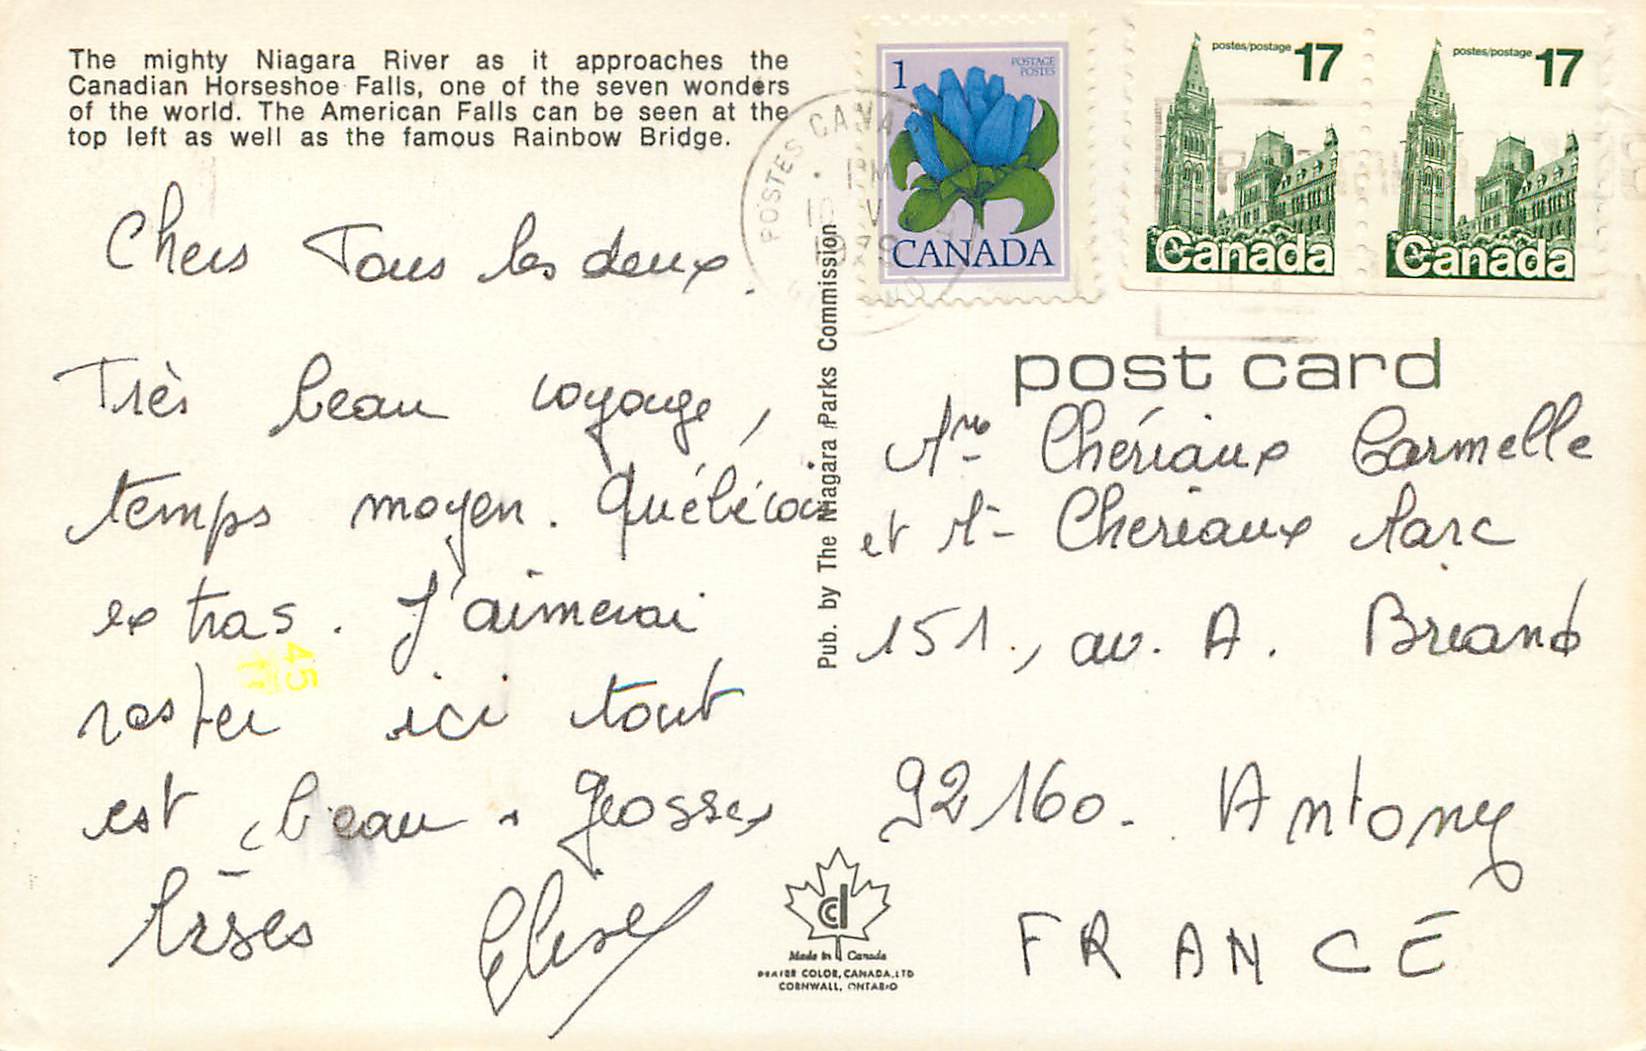 The mighty Niagara River as it approaches the
Canadian Horseshoe Falls, one of the seven wonders
of the world. The American Falls can be seen at the
top left as well as the famous Rainbow Bridge.
Chers Tous les deux.
Très beau voyage,
temps moyen. Québécois
extras. J'aimerai
rester ici tout
est beau. Grosses
Bises Elise
45
Pub. by The Niagara Parks Commission
POSTES CANADA
PM
1979
1
POSTAGE
POSTES
CANADA
postes/postage 17
Canada
postes/postage 17
Canada
post card
Me Chériaux Carmelle
et M- Cheriaux Marc
151, av. A. Briand
92160. Antony
FRANCE
cd
Made in Canada
COLOR, CANADA, LTD
CORNWALL, ONTARIO